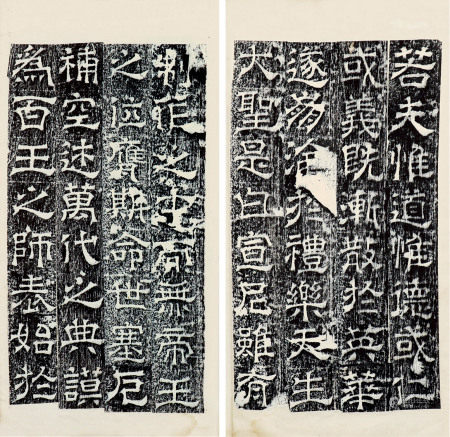 若夫惟道惟德或仁
或義既漸散扵英華
遂淪扵禮樂天生
大聖是曰宣尼雖有
制作之才而無帝王
之位膺期命世塞厄
補空述萬代之典謨
為百王之師表始扵